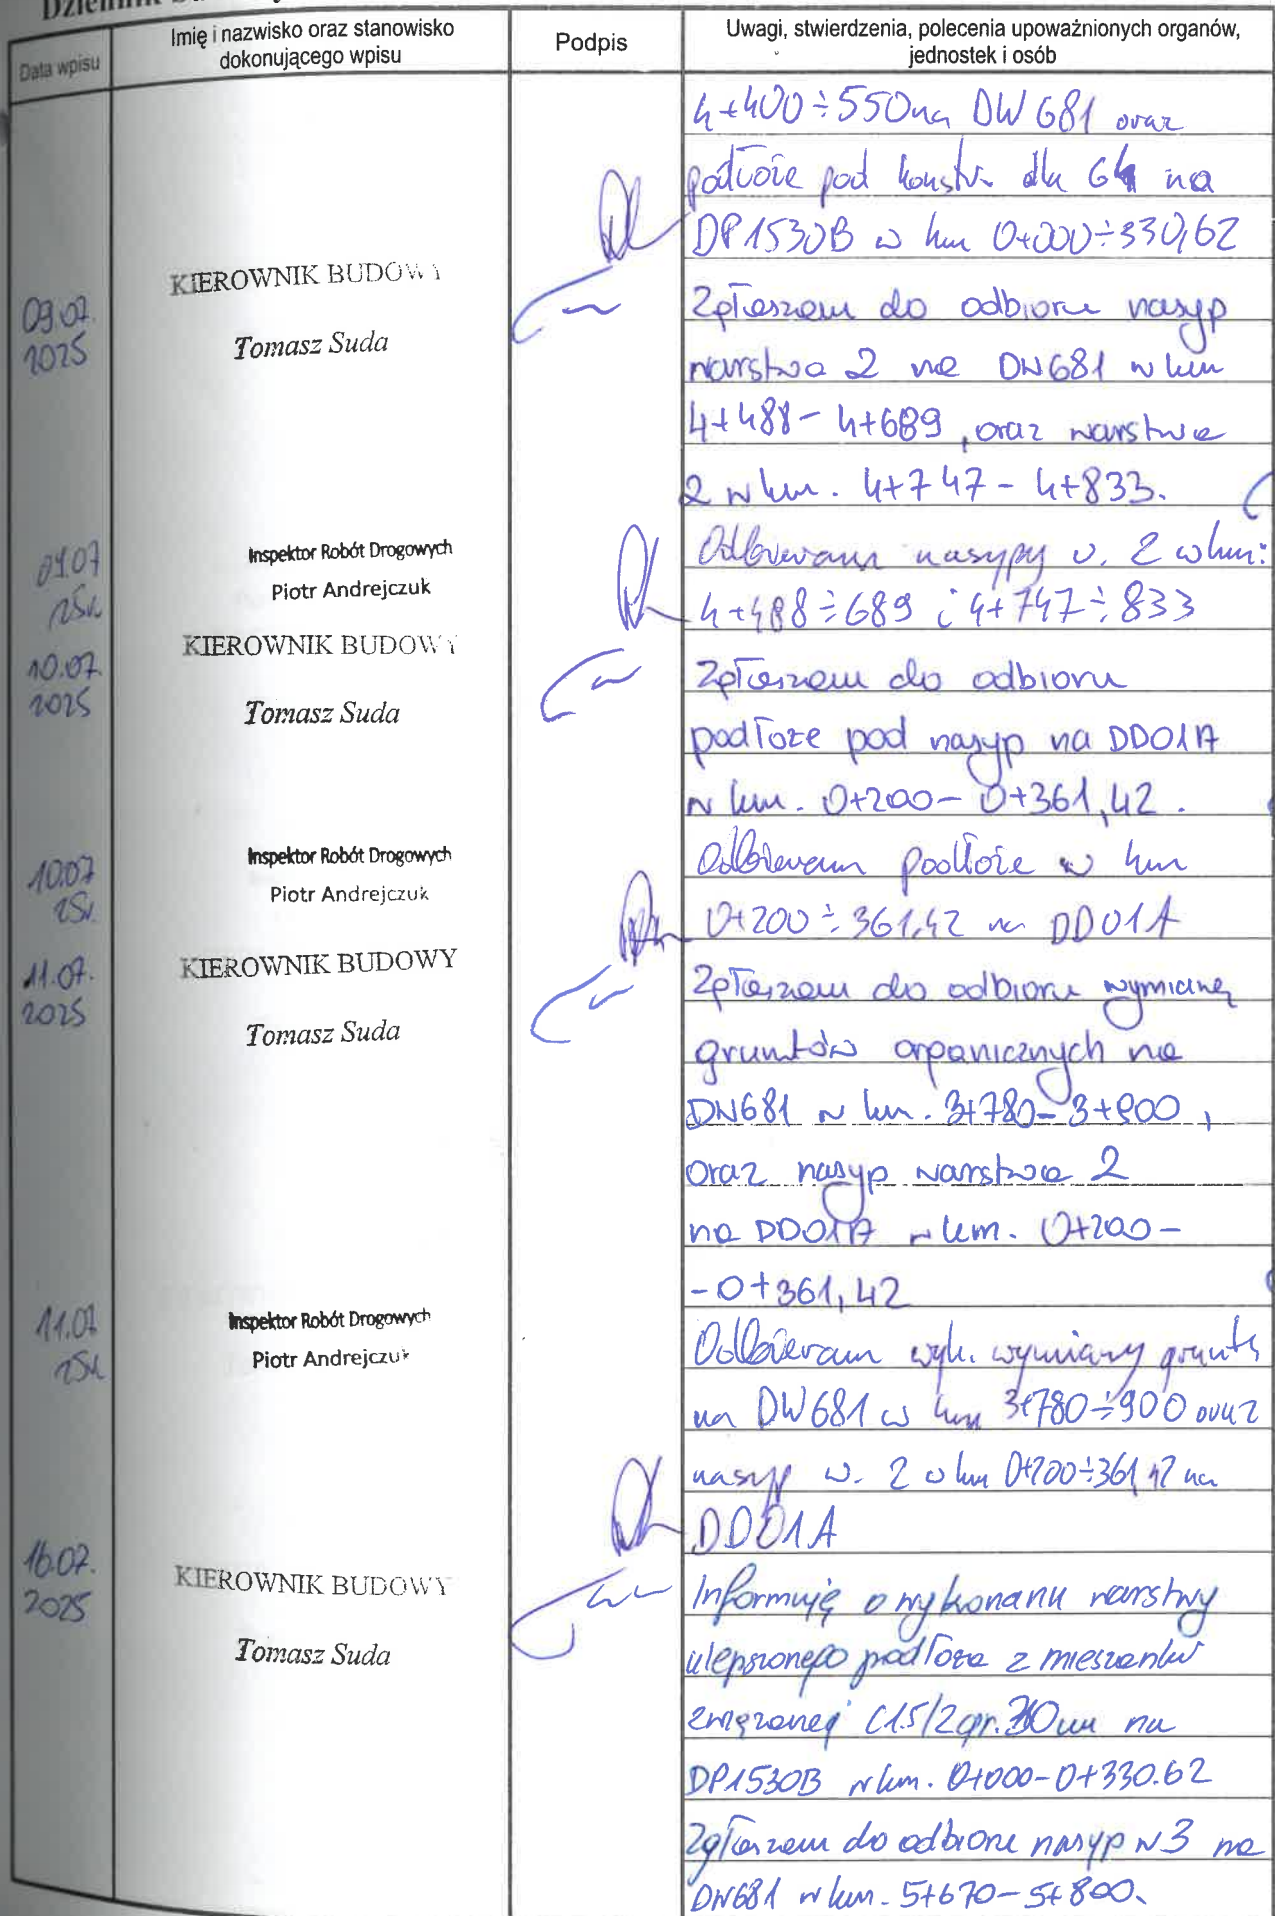 Data wpisu
Imię i nazwisko oraz stanowisko
dokonującego wpisu
Podpis
Uwagi, stwierdzenia, polecenia upoważnionych organów,
jednostek i osób
4+400÷550 na DW 681 oraz
podłoże pod konstr. dla G4 na
DP1530B w km 0+000÷330,62
09.07.
2025
KIEROWNIK BUDOWY
Tomasz Suda
Zgłaszam do odbioru nasyp
warstwa 2 na DW681 w km
4+488 - 4+689, oraz warstwa
2 w km. 4+747 - 4+833.
09.07
25r.
Inspektor Robót Drogowych
Piotr Andrejczuk
Odbieram nasypy w. 2 w km:
4+488÷689 i 4+747÷833
10.07.
2025
KIEROWNIK BUDOWY
Tomasz Suda
Zgłaszam do odbioru
podłoże pod nasyp na DD01A
w km. 0+200 - 0+361,42.
10.07
25r.
Inspektor Robót Drogowych
Piotr Andrejczuk
Odbieram podłoże w km
0+200÷361,42 na DD01A
11.07.
2025
KIEROWNIK BUDOWY
Tomasz Suda
Zgłaszam do odbioru wymianę
gruntów organicznych na
DW681 w km. 3+780 - 3+900,
oraz nasyp warstwa 2
na DD01A w km. 0+200 -
- 0+361,42
11.07
25r.
Inspektor Robót Drogowych
Piotr Andrejczuk
Odbieram wyk. wymiany gruntu
na DW681 w km 3+780÷900 oraz
nasyp w. 2 w km 0+200÷361,42 na
DD01A
16.07.
2025
KIEROWNIK BUDOWY
Tomasz Suda
Informuję o wykonaniu warstwy
ulepszonego podłoża z mieszanki
związanej C1.5/2 gr. na
DP1530B w km. 0+000 - 0+330.62
Zgłaszam do odbioru nasyp w3 na
DW681 w km. 5+670 - 5+800.